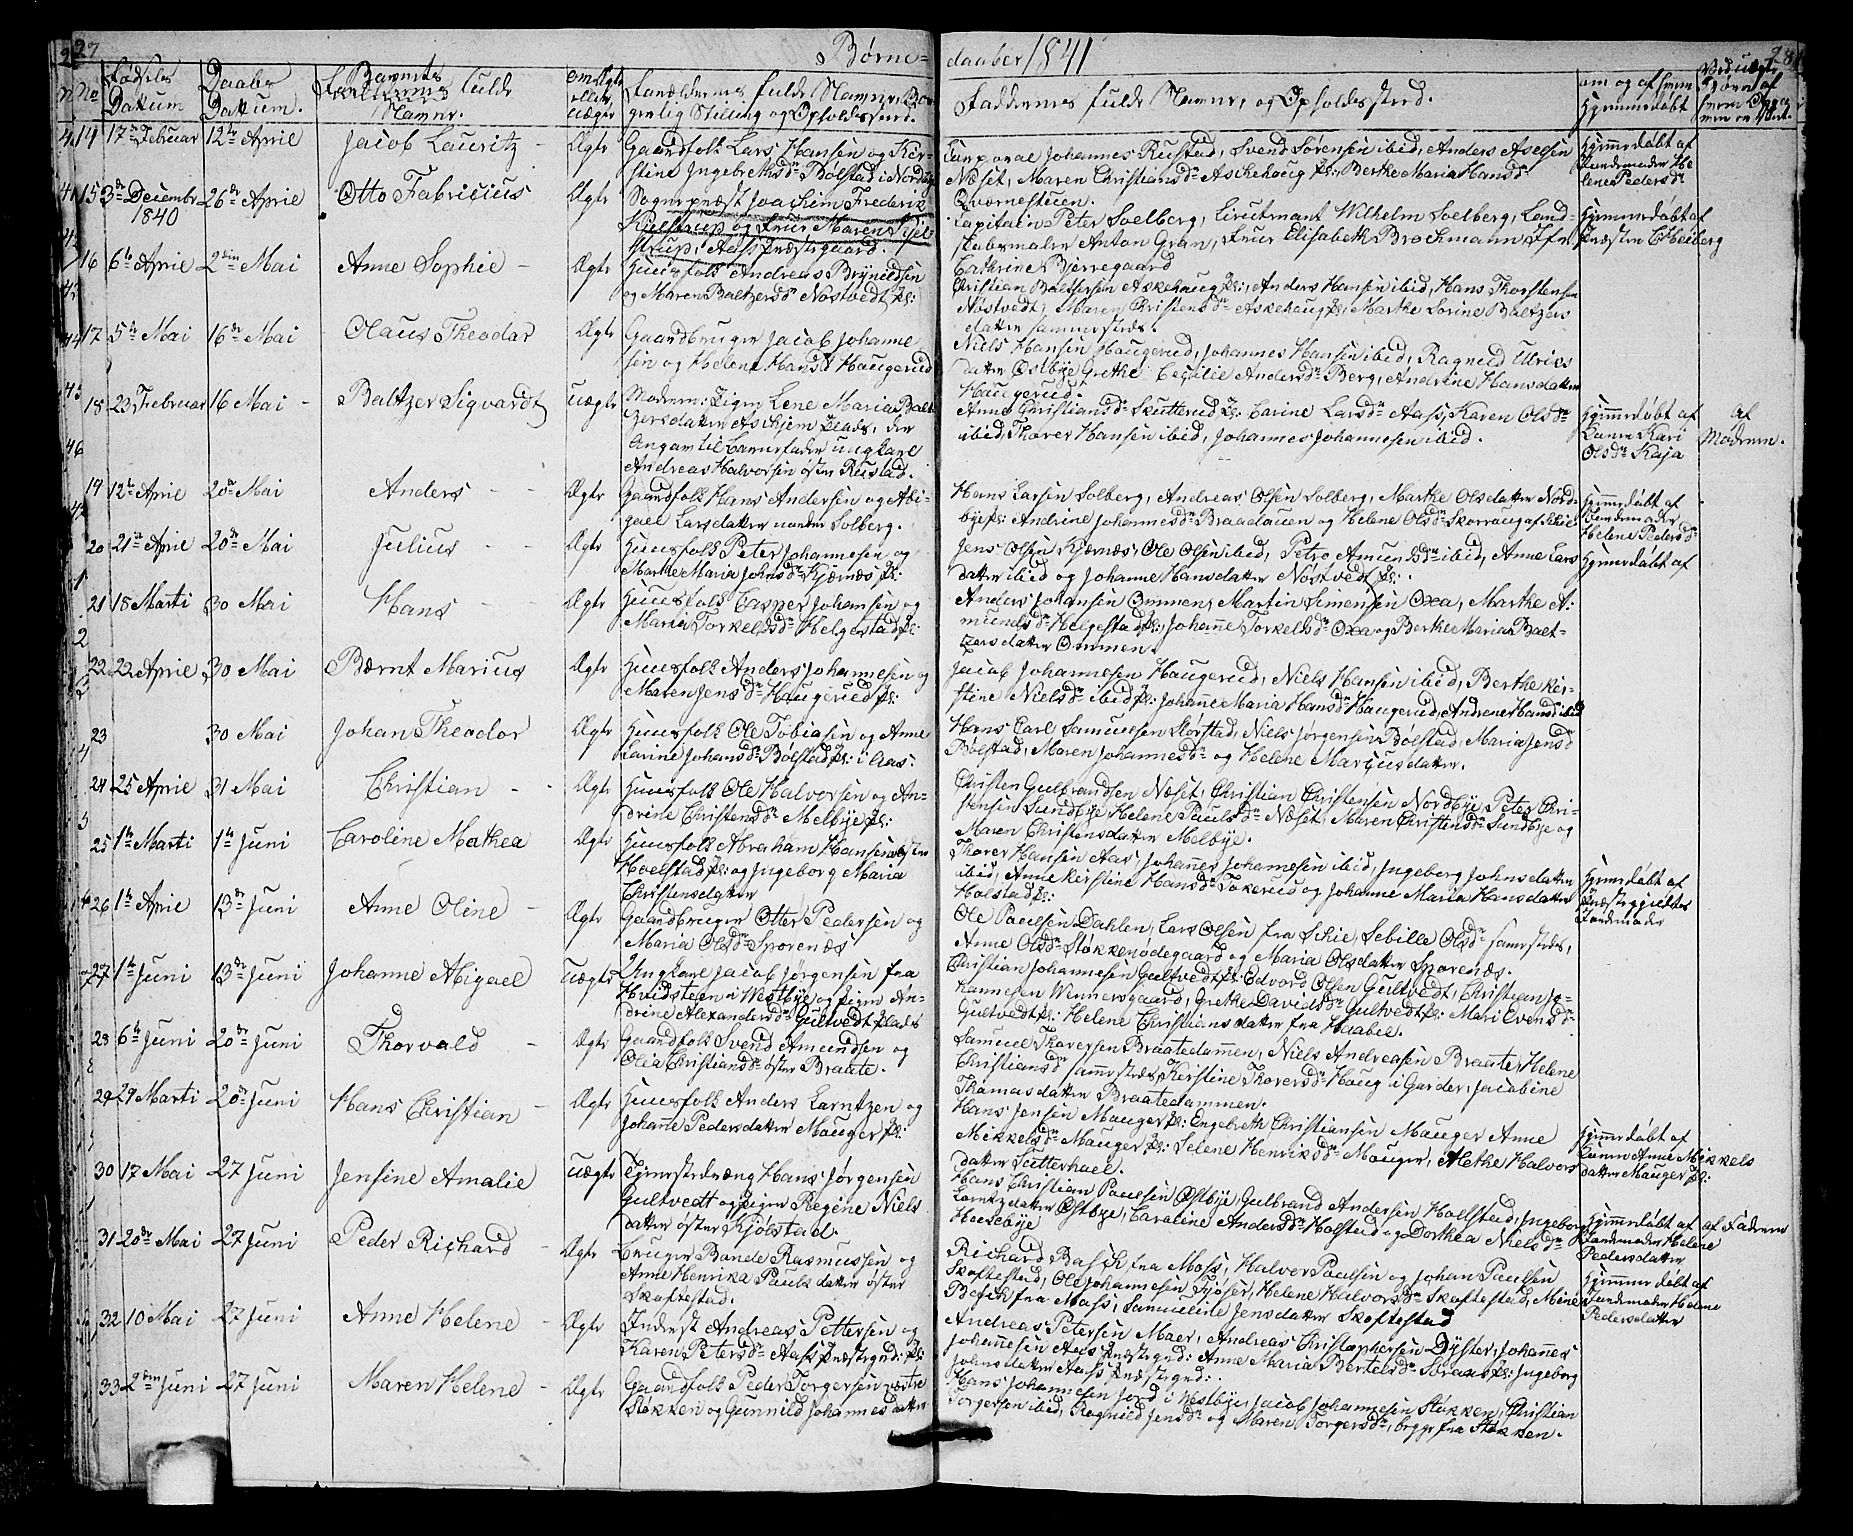 27
Børne-
daaber 1841
28
No
Fødsels Datum
Daabs Datum.
Barnets fulde Navne.
om Ægte eller Uægte
Forældrenes fulde Navne, Borgerlig Stilling og Opholdssted.
Faddernes fulde Navne, og Opholdssted.
om og af hvem hjemmedøbt
14 17de Februar 12te April Jacob Lauritz - Ægte
Gaardfolk Lars Hansen og Kir-
stine Ingebrethsdr Bølstad i Nordby
Corporal Johannes Rustad, Svend Sørensen ibid, Anders Axelsen
Næset, Maren Christiansdr Askehaug pl: Berthe Maria Hansdr
Qvernestuen.
hjemmedøbt af
Jordemoder He-
lene Pedersdr
15 3de Decembr 1840 26de April Otto Fabricius Ægte
Sognepræst Joachim Frederik
Kjelstrup og Frue Maren Kjel-
strup, Aass Præstegaard.
Capitain Peter Soelberg, Lieutenant Wilhelm Soelberg, Land-
skabsmaler Anton Gran, Frue Elisabeth Brochmann, Jfr.
Cathrine Bjerregaard
hjemmedøbt af
Præsten C Heiberg
16 6te April 2den Mai Anne Sophie - Ægte
Huusfolk Andreas Brynildsen
og Maren Baltzersdr Nøstvedt pl:
Christian Baltsersen Askehaug pl:, Anders Hansen ibid, Hans Thorstensen
Nøstvedt, Maren Christensdr Askehaug pl: Marthe Sorine Baltzers
datter sammesteds.
17 5te Mai 16de Mai Olaus Theodor Ægte
Gaardbruger Jacob Johanne-
sen og Helene Hansdr Haugerud
Niels Hansen Haugerud, Johannes Hansen ibid, Ragnild Ulrics
datter Østbye Grethe Cecilie Andersdr Berg, Andrine Hansdatter
Haugerud.
18 23 Februar 16 Mai - Baltzer Sigvardt Uægte
Moderen: Pigen Lene Maria Balt-
zersdatter Askjem Plads, der
Angav til Barnefader ungkarl
Andreas Halvorsen øster Rustad.
Anne Christiansdr Skutterud pl: Carine Larsdr Aass, Karen Olsdr
ibid, Thorer Hansen ibid, Johannes Johannesen ibid.
hjemmedøbt af
Konen Kari
Olsdr Kaja
af
Moderen.
19 12te April 20de Mai Anders - - Ægte
Gaardfolk Hans Andersen og Abi-
gael Larsdatter nordre Solberg.
Hans Larsen Solberg, Andreas Olsen Solberg, Marthe Olsdatter Nord-
bye pl: Andrine Johannesdr Braadauen og Helene Olsdr Skorraug af Skie
hjemmedøbt af
Jordemoder
Helene Pedersdr
20 21de April 20de Mai Julius - - Ægte
Huusfolk Peter Johannesen og
Marthe Maria Johnsdr Kjærnæs pl:
Jens Olsen Kjærnæs, Ole Olsen ibid, Petro Amundsdr ibid, Anne Lars
datter ibid og Johanne Hansdatter Nøstvedt pl:
hjemmedøbt af
21 18 Marti 30 Mai Hans - Ægte
Huusfolk Casper Johansen og
Maria Torkelsdr Helgestad pl:
Anders Johansen Ommen, Martin Simensen Oxa, Marthe A-
mundsdr Helgestad pl: Johanne Torkelsdr Oxa og Berthe Maria Balt-
zersdatter Ommen.
22 22 April 30 Mai Bærnt Marius Ægte
Huusfolk Anders Johannesen og
Maren Jensdr Haugerud pl:
Jacob Johannesen Haugerud, Niels Hansen ibid, Berthe Kir-
stine Nielsdr ibid pl: Johanne Maria Hansdr Haugerud, Andrene Hansdr ibid
23 30 Mai Johan Theodor Ægte
Huusfolk Ole Tobiasen og Anne
Karine Johansdr Bølstad pl: i Aas.
Hans Carl Samuelsen Storstad, Niels Jørgensen Bølstad, Maria Jensdr
Bølstad, Maren Johannesdr og Helene Marcusdatter.
24 25 April 31 Mai Christian - - Ægte
Huusfolk Ole Halvorsen og An-
drine Christensdr Melbye pl:
Christen Gulbrandsen Næset, Christian Christensen Nordbye, Peter Chri-
stensen Sundbye Helene Paulsdr Næset, Maren Christensdr Sundbye og
Maren Christensdatter Melbye.
25 1te Marti 1te Juni Caroline Mathea Ægte
Huusfolk Abraham Hansen øster
Hoelstad pl: og Ingeborg Maria
Christensdatter
Thorer Hansen Aas, Johannes Johannesen ibid, Ingeborg Johnsdatter
ibid, Anne Kirstine Hansdr Tokerud og Johanne Maria Hansdatter
Holstad pl:
hjemmedøbt af
Jordemoder
26 1te April 13de Juni Anne Oline - Ægte
Gaardbruger Otter Pedersen og
Maria Olsdr Sporenæs
Ole Paulsen Dahlen, Lars Olsen fra Skie, Sebille Olsdr sammesteds,
Anne Olsdr Støkkenødegaard og Maria Olsdatter Sporenæs.
27 1te Juni 13de Juni Johanne Abigael Uægte
Ungkarl Jacob Jørgensen fra
Hvidsteen i Westbye og pigen An-
drine Alexandersdr Gultvedt plads
Christian Johannesen Gultvedt pl: Edvord Olsen Gultvedt, Christian Jo-
hannesen Wennersgaard, Grethe Davidsdr Gultvedt pl: Mari Evensdr
Gultvedt pl: Helene Christiansdatter fra Haabøl.
28 6te Juni 20de Juni Thorvald - Ægte
Gaardfolk Svend Amundsen og
Olea Christiansdr øster Braate.
Samuel Thorersen Braatedammen, Niels Andreasen Braate, Helene
Christiansdr sammesteds, Kirstine Thorersdr Houg i Garder, Jacobine
Thomasdatter Braatedammen.
29 29 Marti 20de Juni Hans Christian - Ægte
Huusfolk Anders Larntzen og
Johanne Pedersdatter Mauger pl:
Hans Jensen Mauger pl: Engebreth Christiansen Mauger Anne
Mikkelsdr Mauger pl: Helene Henriksdr Mauger, Alethe Halvors
datter Sutterhoel.
hjemmedøbt af
Konen Anne Mikkels
datter Mauger pl:
30 17 Mai 27 Juni Jensine Amalie Uægte
Tjenestedreng Hans Jørgensen
Gultvedt og Pigen Regine Niels
datter øster Kjølstad.
Hans Christian Paulsen Østbye, Gulbrand Andersen Holstad, Ingeborg
Larntzdatter Østbye, Caroline Andersdr Holstad og Dorthea Nielsdr
Hoelebye
hjemmedøbt af
Jordemoder Helene
Pedersdatter
af Faderen
31 20de Mai 27 Juni Peder Richard - Ægte
Bruger Bonde Rasmussen og
Anne Henrika Paulsdatter øster
Skoftestad.
Richard Basch fra Moss, Halvor Paulsen og Johan Paulsen
Skoftestad, Ole Johannesen Tjøser, Helene Halvorsdr Skoftestad, Mine
Basch fra Moss, Samueline Jensdatter Skoftestad
hjemmedøbt af
Jordemoder Helene
Pedersdatter
32 10 Mai 27 Juni Anne Helene - Ægte
Inderst Andreas Pettersen og
Karen Petersdr Aass Præstegrd: pl:
Andreas Petersen Moer, Andreas Christophersen Dyster, Johannes
Johannesen Aas Præstegrd: Anne Maria Bertelsdr Soraas pl: Ingeborg
Johnsdatter Aass Præstegrd:.
33 2den Juni 27 Juni Maren Helene - Ægte
Gaardfolk Peder Torgersen vestre
Støkken og Gunnild Johannesdatter
Hans Johannesen Jord i Westbye, Jacob Johannesen Støkken, Christian
Torgersen ibid, Ragnild Jensdr og Maren Torgersdr, begge fra Støkken.